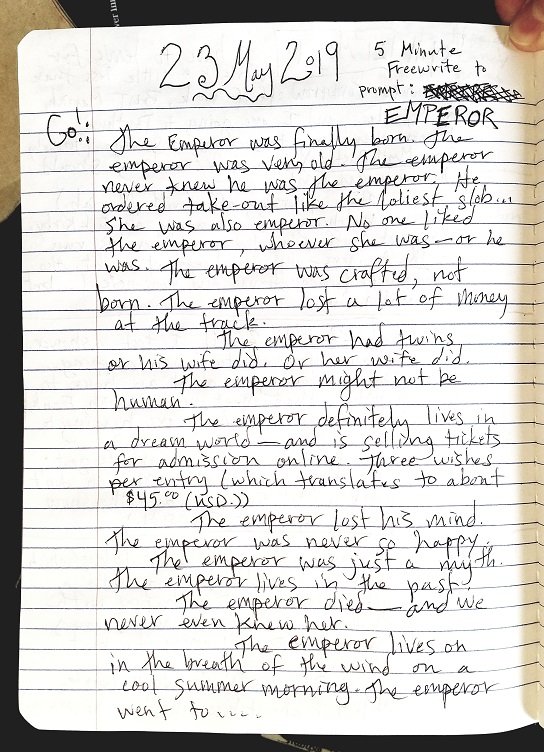 23 May 2019
5 Minute
Freewrite to
prompt:
EMPEROR
Go!:
The Emperor was finally born. The
emperor was very old. The emperor
never knew he was the emperor. He
ordered take-out like the loliest slob...
She was also emperor. No one liked
the emperor, whoever she was—or he
was. The emperor was crafted, not
born. The emperor lost a lot of money
at the track.
The emperor had twins,
or his wife did. Or her wife did.
The emperor might not be
human.
The emperor definitely lives in
a dream world—and is selling tickets
for admission online. Three wishes
per entry (which translates to about
$45.00 (USD.))
The emperor lost his mind.
The emperor was never so happy.
The emperor was just a myth.
The emperor lives in the past.
The emperor died—and we
never even knew her.
The emperor lives on
in the breath of the wind on a
cool summer morning. The emperor
went to....